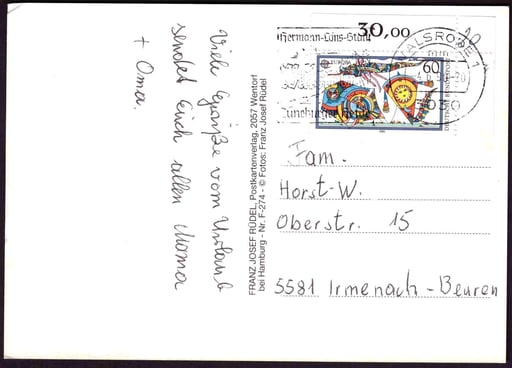 Viele Grüße vom Urlaub
sendet Euch allen Mama
+ Oma.
FRANZ JOSEF RÜDEL, Postkartenverlag, 2057 Wentorf
bei Hamburg - Nr. F-274 - © Fotos: Franz Josef Rüdel
30,00
Hermann-Löns-Stadt
WALSRODE 1
Lüneburger Heide
3030
EUROPA
60
Fam.
Horst-W.
Oberstr. 15
5581 Irmenach-Beuren